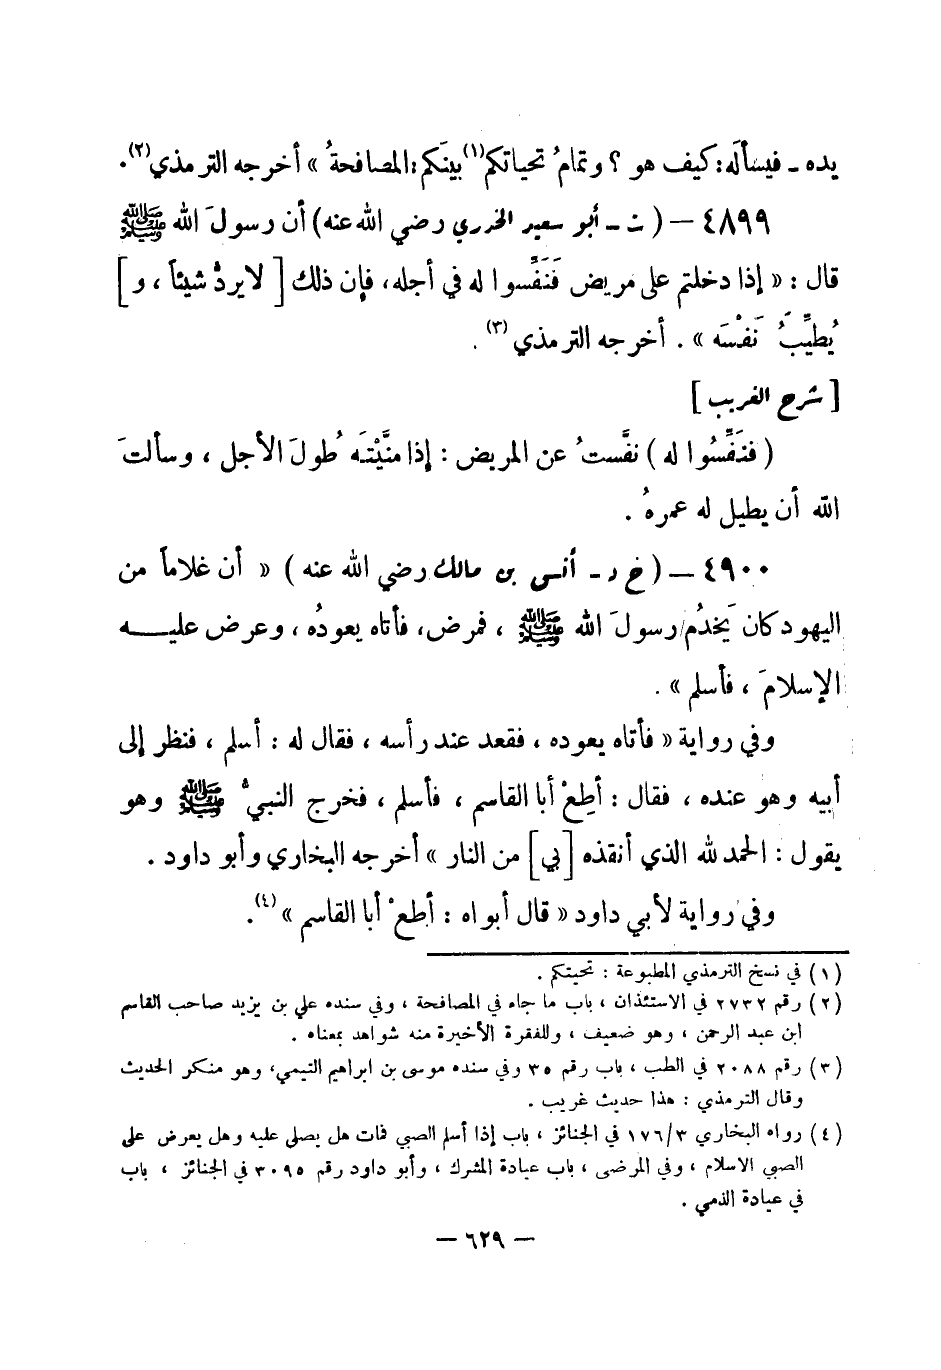 يده ـ فيسألَه : كيف هو ؟ وتمامُ تحياتكم(١) بينَكم : المصافحةُ » أخرجه الترمذي(٢).
٤٨٩٩ – ( ت - أبو سعيد الخدري رضي الله عنه ) أن رسولَ الله ﷺ
قال : « إذا دخلتم على مريض فَنَفِّسوا له في أجله، فإن ذلك [ لا يردُّ شيئاً ، و ]
يُطيِّبُ نَفْسَه » . أخرجه الترمذي (٣) .
[ شرح الغريب ]
( فنَفِّسُوا له ) نفَّستُ عن المريض : إذا منَّيْتَه طُولَ الأجل ، وسألتَ
الله أن يطيل له عمرهُ .
٤٩٠٠ – ( خ د - أنس بن مالك رضي الله عنه ) « أن غلاماً من
اليهود كان يَخدُم رسولَ الله ﷺ ، فمرض، فأتاه يعودُه ، وعرض عليـــه
الإسلامَ ، فأسلم » .
وفي رواية « فأتاه يعوده ، فقعد عند رأسه ، فقال له : أسلم ، فنظر إلى
أبيه وهو عنده ، فقال : أطِعْ أبا القاسم ، فأسلم ، فخرج النبيُّ ﷺ وهو
يقول : الحمد لله الذي أنقذه [بي] من النار » أخرجه البخاري وأبو داود .
وفي رواية لأبي داود « قال أبواه : أطعْ أبا القاسم »(٤).
(١) في نسخ الترمذي المطبوعة : تحيتكم .
(٢) رقم ٢٧٣٢ في الاستئذان ، باب ما جاء في المصافحة ، وفي سنده علي بن يزيد صاحب القاسم
ابن عبد الرحمن ، وهو ضعيف ، وللفقرة الأخيرة منه شواهد بمعناه .
(٣) رقم ٢٠٨٨ في الطب ، باب رقم ٣٥ وفي سنده موسى بن ابراهيم التيمي، وهو منكر الحديث
وقال الترمذي : هذا حديث غريب .
(٤) رواه البخاري ١٧٦/٣ في الجنائز ، باب إذا أسلم الصبي فمات هل يصلى عليه وهل يعرض على
الصبي الاسلام ، وفي المرضى ، باب عيادة المشرك ، وأبو داود رقم ٣٠٩٥ في الجنائز ، باب
في عيادة الذمي .
— ٦٢٩ —